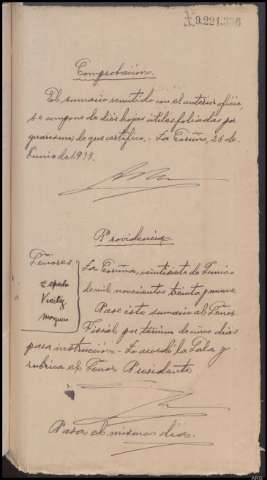 A9.221.336
Comprobación.
El sumario remitido con el anterior oficio,
se compone de diez hojas útiles foliadas por
guarismo de que certifico.- La Coruña, 26 de
Junio de 1939.
Providencia
Señores
La Coruña, veintisiete de Junio
de mil novecientos treinta y nueve
Pase este sumario al Señor
Fiscal por término de cinco días
para instrucción.- Lo acordó la Sala y
rubrica el Señor Presidente
Pasa el mismo día.